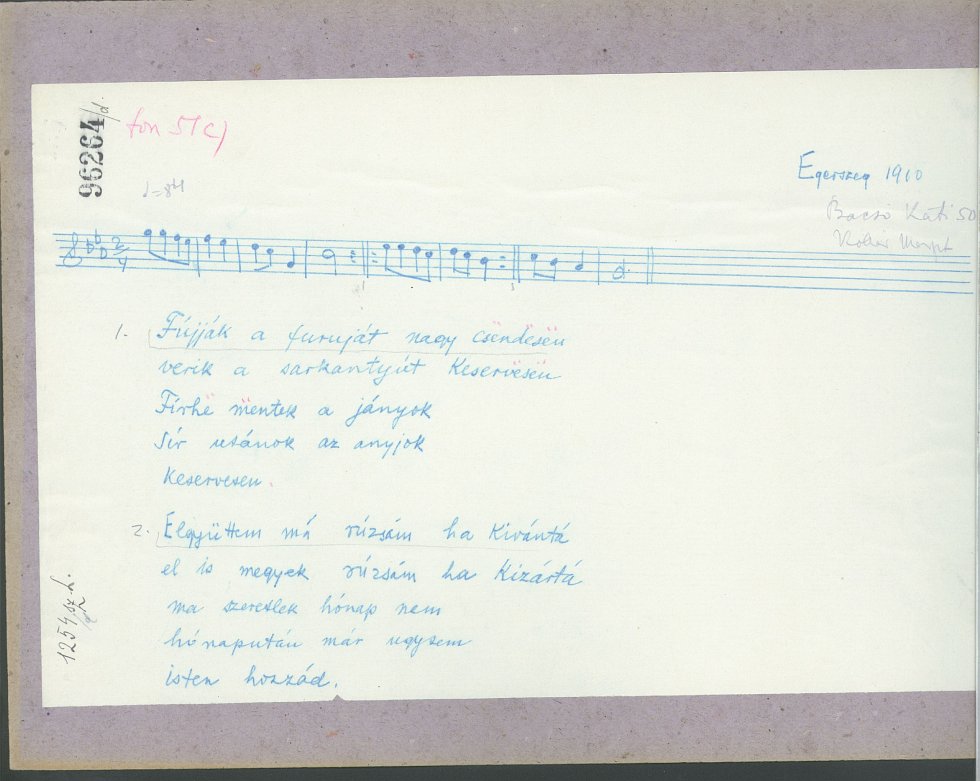 96264/d.
fon 57 c)
♩=84
Egerszeg 1910
Bacsó Kati 50
2/4
1. Fújják a furuját nagy csëndësën
verik a sarkantyút Keservësën
Firhë mëntek a jányok
Sír utánok az anyjok
Keservesen.
2. Elgyüttem má rúzsám ha Kivántá
el is megyek rúzsám ha Kizártá
ma szeretlek hónap nem
hónapután már ugysem
isten hozzád.
1254/sz.L.